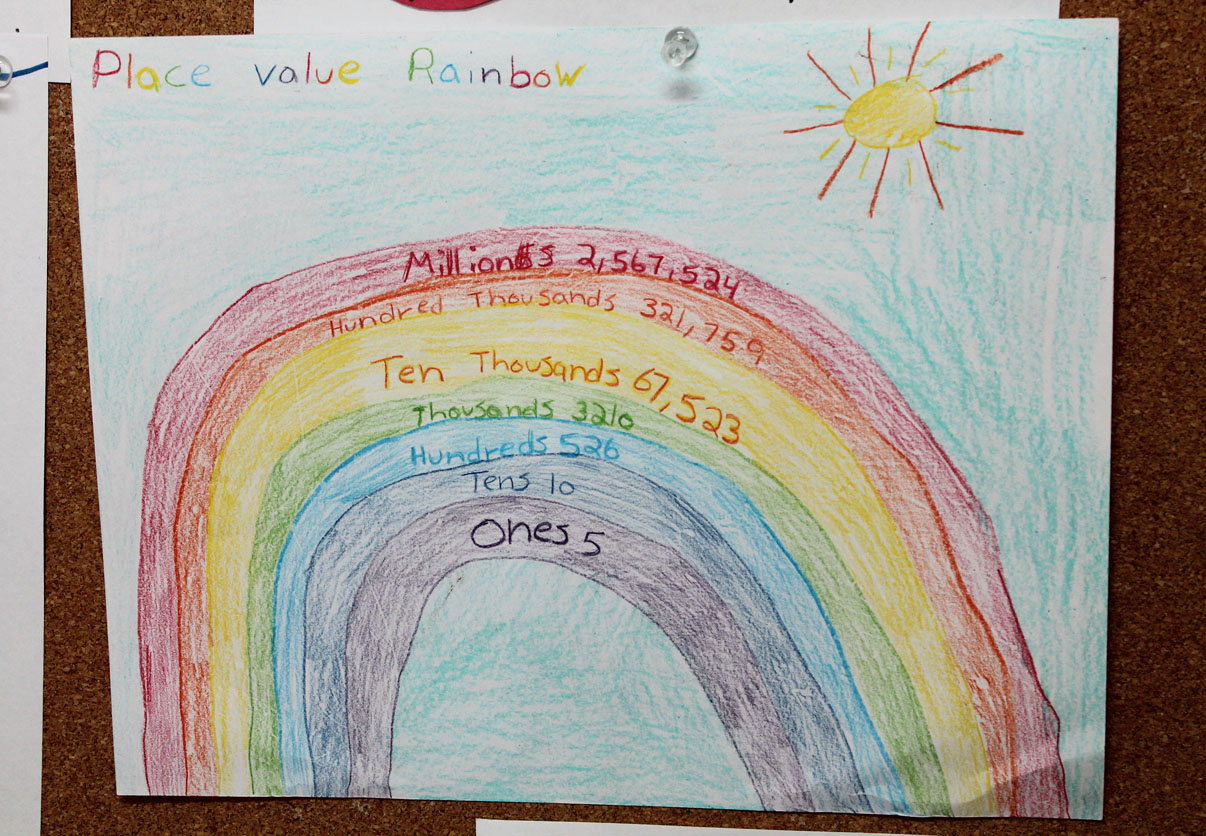 Place value Rainbow
Millions 2,567,524
Hundred Thousands 321,759
Ten Thousands 67,523
Thousands 3210
Hundreds 526
Tens 10
Ones 5